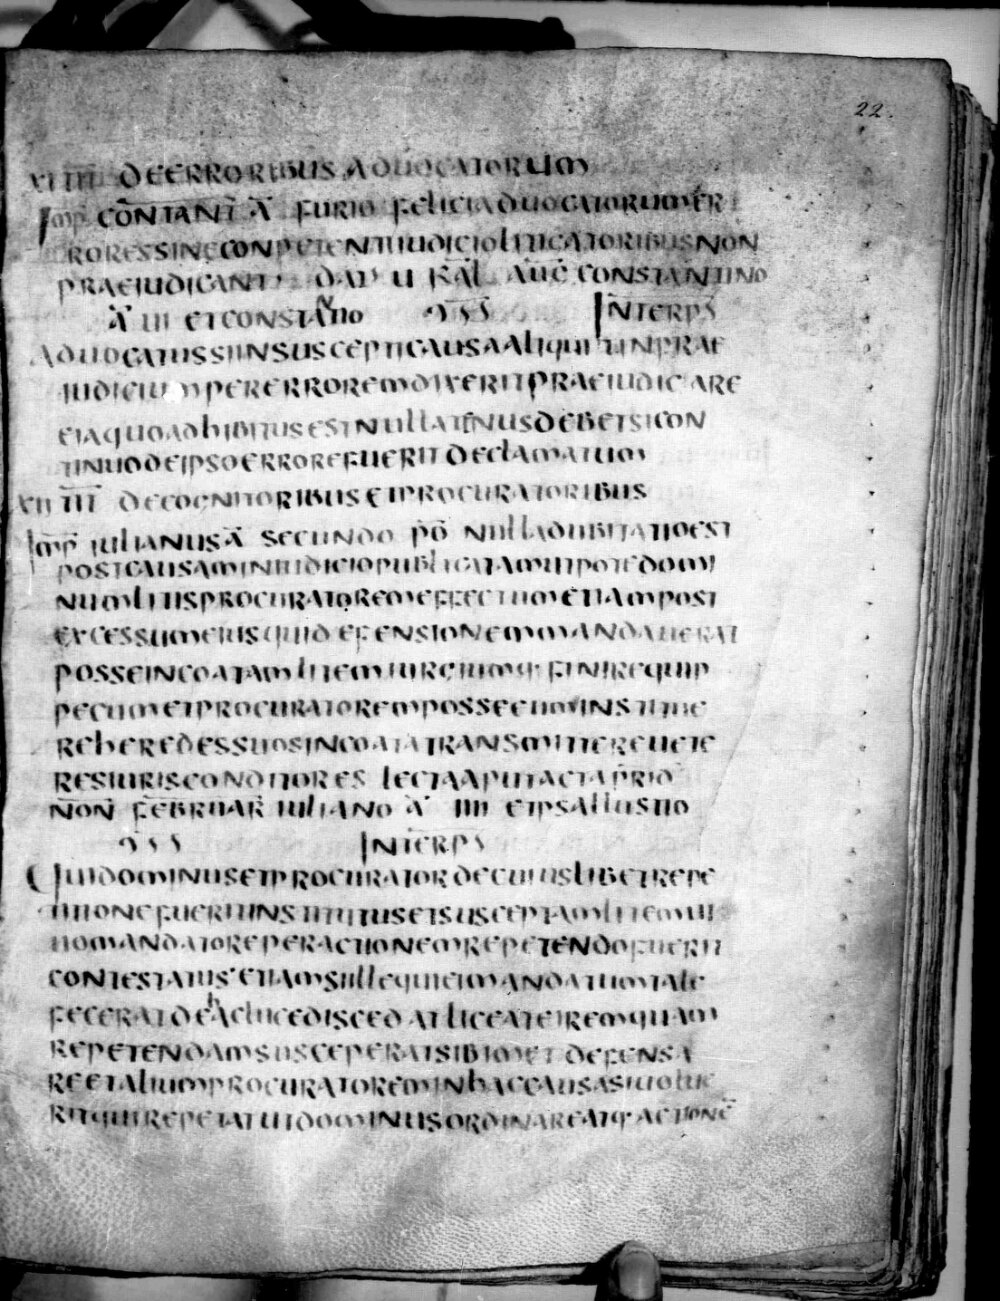 22.
XI IIII DE ERRORIBUS ADUOCATORUM
Imp̄ CŌNTANT̄ Ā FURIO FELICI ADUOCATORUM ER
RORES SINE CONPETENTI IUDICIO LITICATORIBUS NON
PRAEIUDICANT DAT U KĀL AŪC CONSTANTINO
Ā III ET CONSTANTIO CSS INTERPS
ADUOCATUS SI IN SUSCEPTI CAUSA ALIQUIT IN PRAE
IUDICIUM PER ERROREM DIXERIT PRAEIUDICARE
EI A QUO ADHIBITUS EST NULLATENUS DEBET SI CON
TINUO DE IPSO ERRORE FUERIT DECLAMATUM
XII III DE COGNITORIBUS ET PROCURATORIBUS
Imp̄ IULIANUS Ā SECUNDO PŌ NULLA DUBITATIO EST
POST CAUSAM IN IUDICIO PUBLICATAM UTPOTE DOMI
NUM LITIS PROCURATOREM EFFECTUM ETIAM POST
EXCESSUM EIUS QUI DEFENSIONEM MANDAUERAT
POSSE INCOATAM LITEM IURGIUMQ FINIRE QUIP
PE CUM ET PROCURATOREM POSSE EUM INSTITUE
RE HEREDES SUOS INCOATA TRANSMITTERE UETE
RES IURIS CONDITORES LECTA APUT ACTA PRID
NŌN FEBRUAR̄ IULIANO Ā IIII ET P SALLUSTIO
CSS INTERPS
QUI DOMINUS ET PROCURATOR DE CUIUSLIBET REPE
TITIONE FUERIT INSTITUTUS ET SUSCEPTAM LITEM UI
UO MANDATORE PER ACTIONEM REPETENDO FUERIT
CONTESTATUS ETIAMSI ILLE QUI EI MANDATUM TALE
FECERAT DE HAC LUCE DISCEDAT LICEAT EI REM QUAM
REPETENDAM SUSCEPERAT SIBIMET DEFENSA
RE ET ALIUM PROCURATOREM IN HAC CAUSA SI UOLUE
RIT QUI REPETAT UT DOMINUS ORDINARE ATQ ACTIONĒ